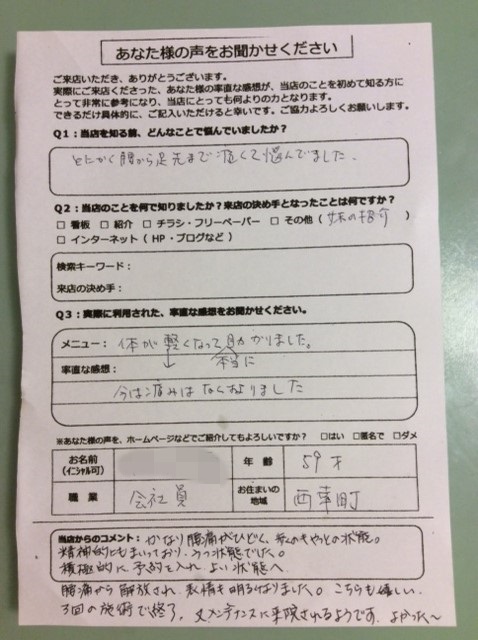 あなた様の声をお聞かせください
ご来店いただき、ありがとうございます。
実際にご来店くださった、あなた様の率直な感想が、当店のことを初めて知る方に
とって非常に参考になり、当店にとっても何よりの力となります。
できるだけ具体的に、ご記入いただけると幸いです。ご協力よろしくお願いします。
Q1：当店を知る前、どんなことで悩んでいましたか？
とにかく腰から足先まで痛くて悩んでました。
Q2：当店のことを何で知りましたか？来店の決め手となったことは何ですか？
□ 看板 □ 紹介 □ チラシ・フリーペーパー □ その他（妹の紹介）
□ インターネット（ HP・ブログなど ）
検索キーワード：
来店の決め手：
Q3：実際に利用された、率直な感想をお聞かせください。
メニュー： 体が軽くなって助かりました。
率直な感想： 本当に
今は痛みはなくなりました
※あなた様の声を、ホームページなどでご紹介してもよろしいですか？ □はい □匿名で □ダメ
お名前 年 齢 59才
(イニシャル可)
職 業 会社員 お住まいの地域 西葦町
当店からのコメント： かなり腰痛がひどく、歩くのもやっとの状態。
精神的にもまいっており、うつ状態でした。
積極的に予約を入れ、よい状態へ
腰痛から解放され、表情も明るなりました。こちらも嬉しい。
3回の施術で終了。又メンテナンスに来院されるようです。よかった〜